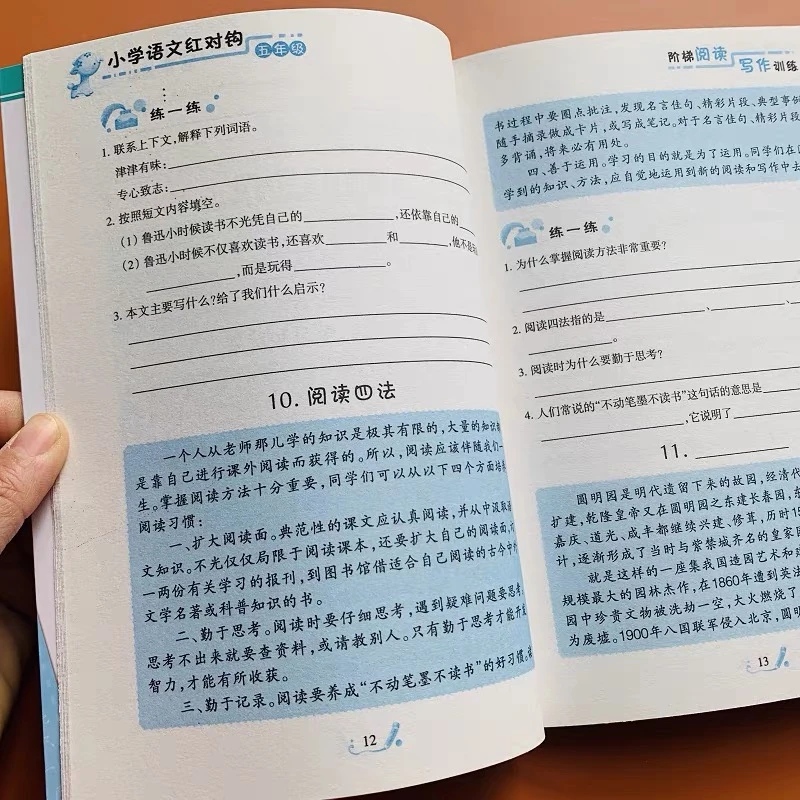 小学语文红对钩 五年级
练一练
1. 联系上下文,解释下列词语。
津津有味:
专心致志:
2. 按照短文内容填空。
(1) 鲁迅小时候读书不光凭自己的____________,还依靠自己的
(2) 鲁迅小时候不仅喜欢读书,还喜欢________和________,他不是
____________,而是玩得____________。
3. 本文主要写什么?给了我们什么启示?
10. 阅读四法
一个人从老师那儿学的知识是极其有限的,大量的知识
是靠自己进行课外阅读而获得的。所以,阅读应该伴随我们一
生。掌握阅读方法十分重要,同学们可以从以下四个方面培
阅读习惯:
一、扩大阅读面。典范性的课文应认真阅读,并从中汲取
文知识。不光仅仅局限于阅读课本,还要扩大自己的阅读面,
一两份有关学习的报刊,到图书馆借适合自己阅读的古今中外
文学名著或科普知识的书。
二、勤于思考。阅读时要仔细思考,遇到疑难问题要思考,
思考不出来就要查资料,或请教别人。只有勤于思考才能开
智力,才能有所收获。
三、勤于记录。阅读要养成“不动笔墨不读书”的好习惯。
12
阶梯阅读 写作训练
书过程中要圈点批注,发现名言佳句、精彩片段、典型事例
随手摘录做成卡片,或写成笔记。对于名言佳句、精彩片段
多背诵,将来必有用处。
四、善于运用。学习的目的就是为了运用。同学们在
学到的知识、方法,应自觉地运用到新的阅读和写作中去
练一练
1. 为什么掌握阅读方法非常重要?
2. 阅读四法指的是____________、____________、
____________。
3. 阅读时为什么要勤于思考?
4. 人们常说的“不动笔墨不读书”这句话的意思是
____________,它说明了
11. ____________
圆明园是明代遗留下来的故园,经清代
扩建,乾隆皇帝又在圆明园之东建长春园,东
嘉庆、道光、咸丰都继续兴建、修葺,历时15
计,逐渐形成了当时与紫禁城齐名的皇家园
就是这样的一座集我国造园艺术和建
规模最大的园林杰作,在1860年遭到英法
园中珍贵文物被洗劫一空,大火燃烧了
为废墟。1900年八国联军侵入北京,圆明
13